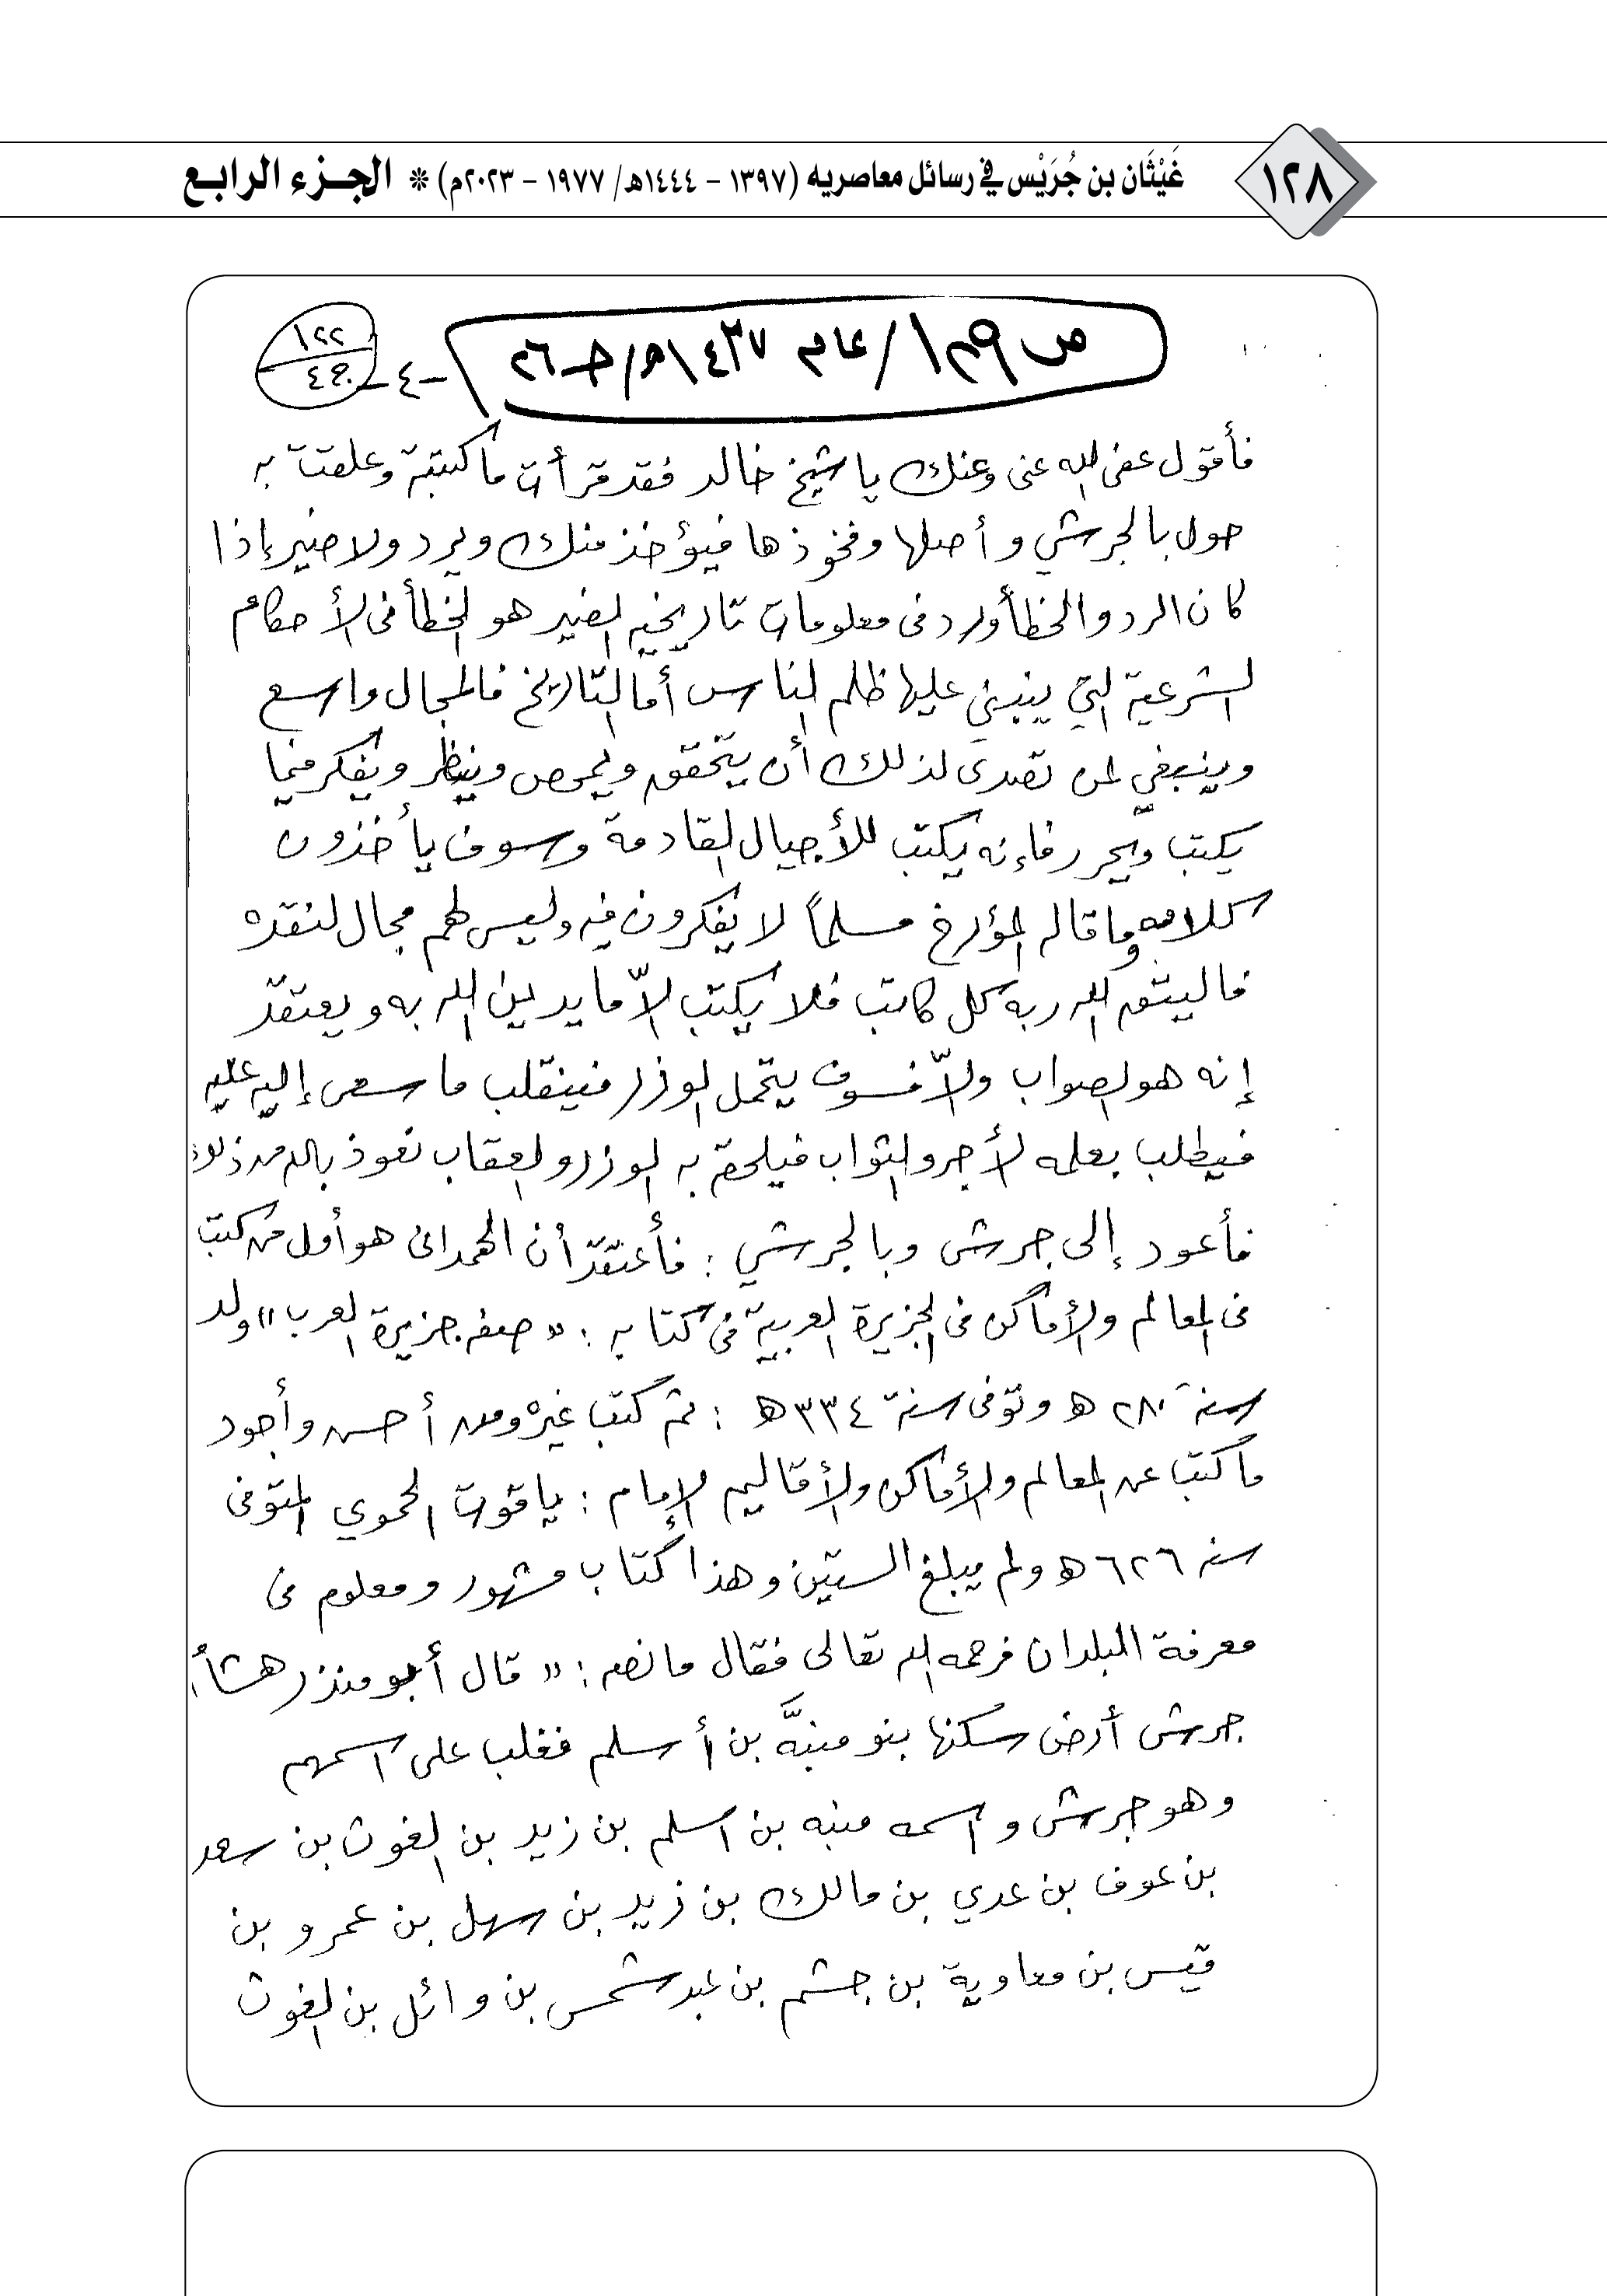 ١٢٨
غَيْثَان بن جُرَيْس في رسائل معاصريه (١٣٩٧ - ١٤٤٤هـ/ ١٩٧٧ - ٢٠٢٣م) ❊ الجـزء الرابـع
/عام ١٤٣٧هـ/جـ٢٦
١٢٢
ج٤
-٤-
فأقول عفى الله عنى وعنك يا شيخ خالد فقد قرأت ما كتبته وعلقت به
حول بالجرشي وأصلها وفخوذها فيؤخذ منك ويرد ولا ضير إذا
كان الرد والخطأ وارد فى معلومات تاريخيه الضير هو الخطأ فى الأحكام
الشرعية التي ينبني عليها ظلم الناس أما التاريخ فالمجال واسع
وينبغي لمن تصدى لذلك أن يتحقق ويمحص وينظر ويفكر فيما
يكتب ويحرر فإنه يكتب للأجيال القادمة وسوف يأخذون
كلامه وما قاله المؤرخ مسلماً لا يفكرون فيه وليس لهم مجال لنقده
فاليتق الله ربه كل كاتب فلا يكتب الاّ ما يدين الله به ويعتقد
إنه هو الصواب ولاّ فسوف يتحمل الوزر فينقلب ما سعى إليه عليه
فيطلب بعلمه الأجر والثواب فيلحق به الوزر والعقاب نعوذ بالله من ذلك
فأعود إلى جرش وبالجرشي : فأعتقد أن الهمدانى هو أول من كتب
فى المعالم والأماكن فى الجزيرة العربية فى كتابه : « صفه جزيرة العرب » ولد
سنة ٢٨٠ هـ وتوفى سنة ٣٣٤ هـ : ثم كتب غيره ومن أحسن وأجود
ما كتب عن المعالم والأماكن والأقاليم الإمام : ياقوت الحموي المتوفى
سنه ٦٢٦ هـ ولم يبلغ الستين وهذا كتاب مشهور ومعلوم فى
معرفة البلدان فرحمه الله تعالى فقال ما نصه : « قال أبو منذر هشام
جرش أرض سكنها بنو منبّه بن أسلم فغلب على اسمهم
وهو جرش واسمه منبه بن اسلم بن زيد بن الغوث بن سعد
بن عوف بن عدي بن مالك بن زيد بن سهل بن عمرو بن
قيس بن معاوية بن جشم بن عبد شمس بن وائل بن الغوث